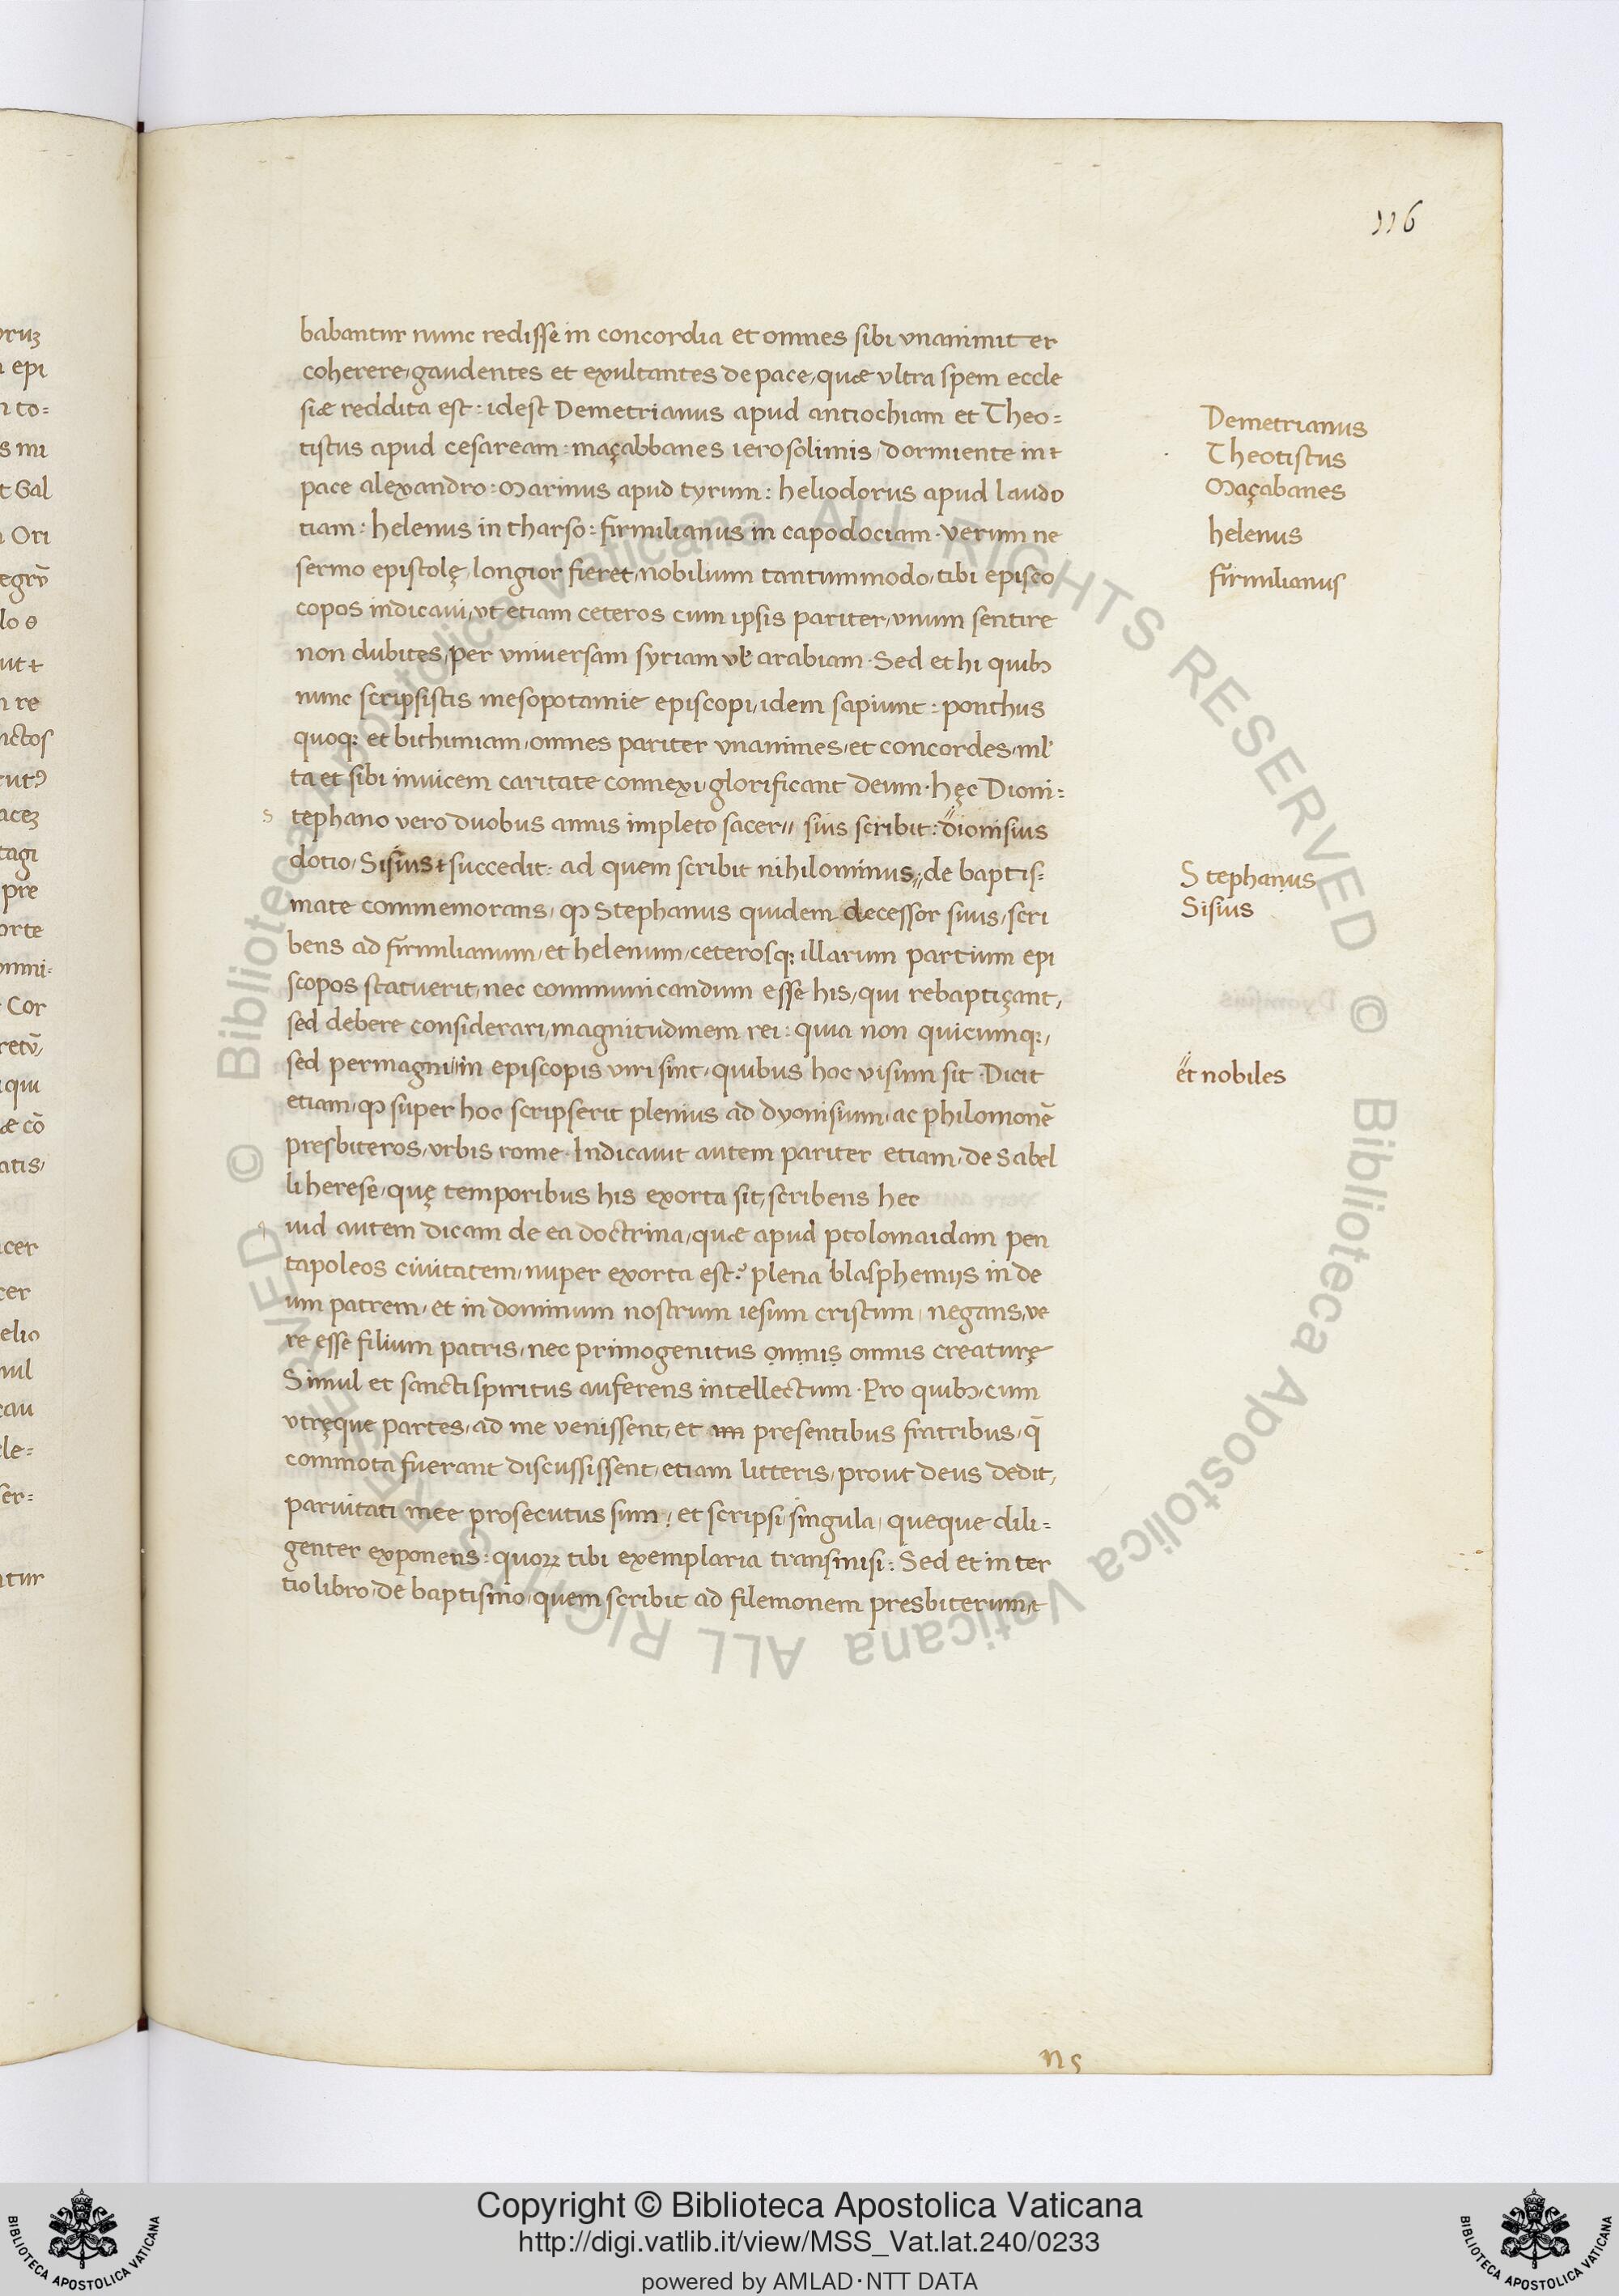 116
babantur nunc redisse in concordia et omnes sibi vnanimit er
coherere, gaudentes et exultantes de pace, quæ vltra spem eccle
siæ reddita est: idest Demetrianus apud antiochiam et Theo=
tistus apud cesaream: maçabbanes ierosolimis, dormiente in
pace alexandro: Marinus apud tyrum: heliodorus apud laudo
tiam: helenus in tharso: firmilianus in capodociam. verum ne
sermo epistolę, longior fieret, nobilium tantummodo, tibi episco
copos indicaui, vt etiam ceteros cum ipsis pariter, vnum sentire
non dubites, per vniuersam syriam vł arabiam. Sed et hi quibꝫ
nunc scripsistis mesopotamie episcopi, idem sapiunt: ponthus
quoqꝫ et bithiniam, omnes pariter vnanimes, et concordes, ml'
ta et sibi inuicem caritate connexi, glorificant deum. hęc Dioni=
s tephano vero duobus annis impleto sacer// sius scribit: dionisius
dotio, Sisius succedit: ad quem scribit nihilominus, de baptis=
mate commemorans, ꝙ Stephanus quidem decessor suus, scri
bens ad firmilianum, et helenum, ceterosqꝫ illarum partium epi
scopos statuerit, nec communicandum esse his, qui rebaptiçant,
sed debere considerari, magnitudinem rei: quia non quicumqꝫ,
sed permagni // in episcopis viri sint, quibus hoc visum sit. Dicit
etiam, ꝙ super hoc scripserit plenius ad dyonisium, ac philomonē
presbiteros, vrbis rome. Indicauit autem pariter etiam, de Sabel
li herese, quę temporibus his exorta sit, scribens hec
q uid autem dicam de ea doctrina, quæ apud ptolomaidam pen
tapoleos ciuitatem, nuper exorta est? plena blasphemijs in de
um patrem, et in dominum nostrum iesum cristum, negans, ve
re esse filium patris, nec primogenitus omnis omnis creaturę
Simul et sancti spiritus auferens intellectum. Pro quibꝫ, cum
vtręque partes, ad me venissent, et presentibus fratribus, q̄
commota fuerant discussissent, etiam litteris, prout deus dedit,
paruitati mee prosecutus sum, et scripsi singula, queque dili=
genter exponens: quoꝝ tibi exemplaria transmisi: Sed et in ter
tio libro, de baptismo, quem scribit ad filemonem presbiterum,
Demetrianus
Theotistus
Maçabanes
helenus
firmilianus
Stephanus
Sisius
et nobiles
Copyright © Biblioteca Apostolica Vaticana
http://digi.vatlib.it/view/MSS_Vat.lat.240/0233
powered by AMLAD·NTT DATA
BIBLIOTECA APOSTOLICA VATICANA
BIBLIOTECA APOSTOLICA VATICANA
© Biblioteca Apostolica Vaticana ALL RIGHTS RESERVED
© Biblioteca Apostolica Vaticana ALL RIGHTS RESERVED